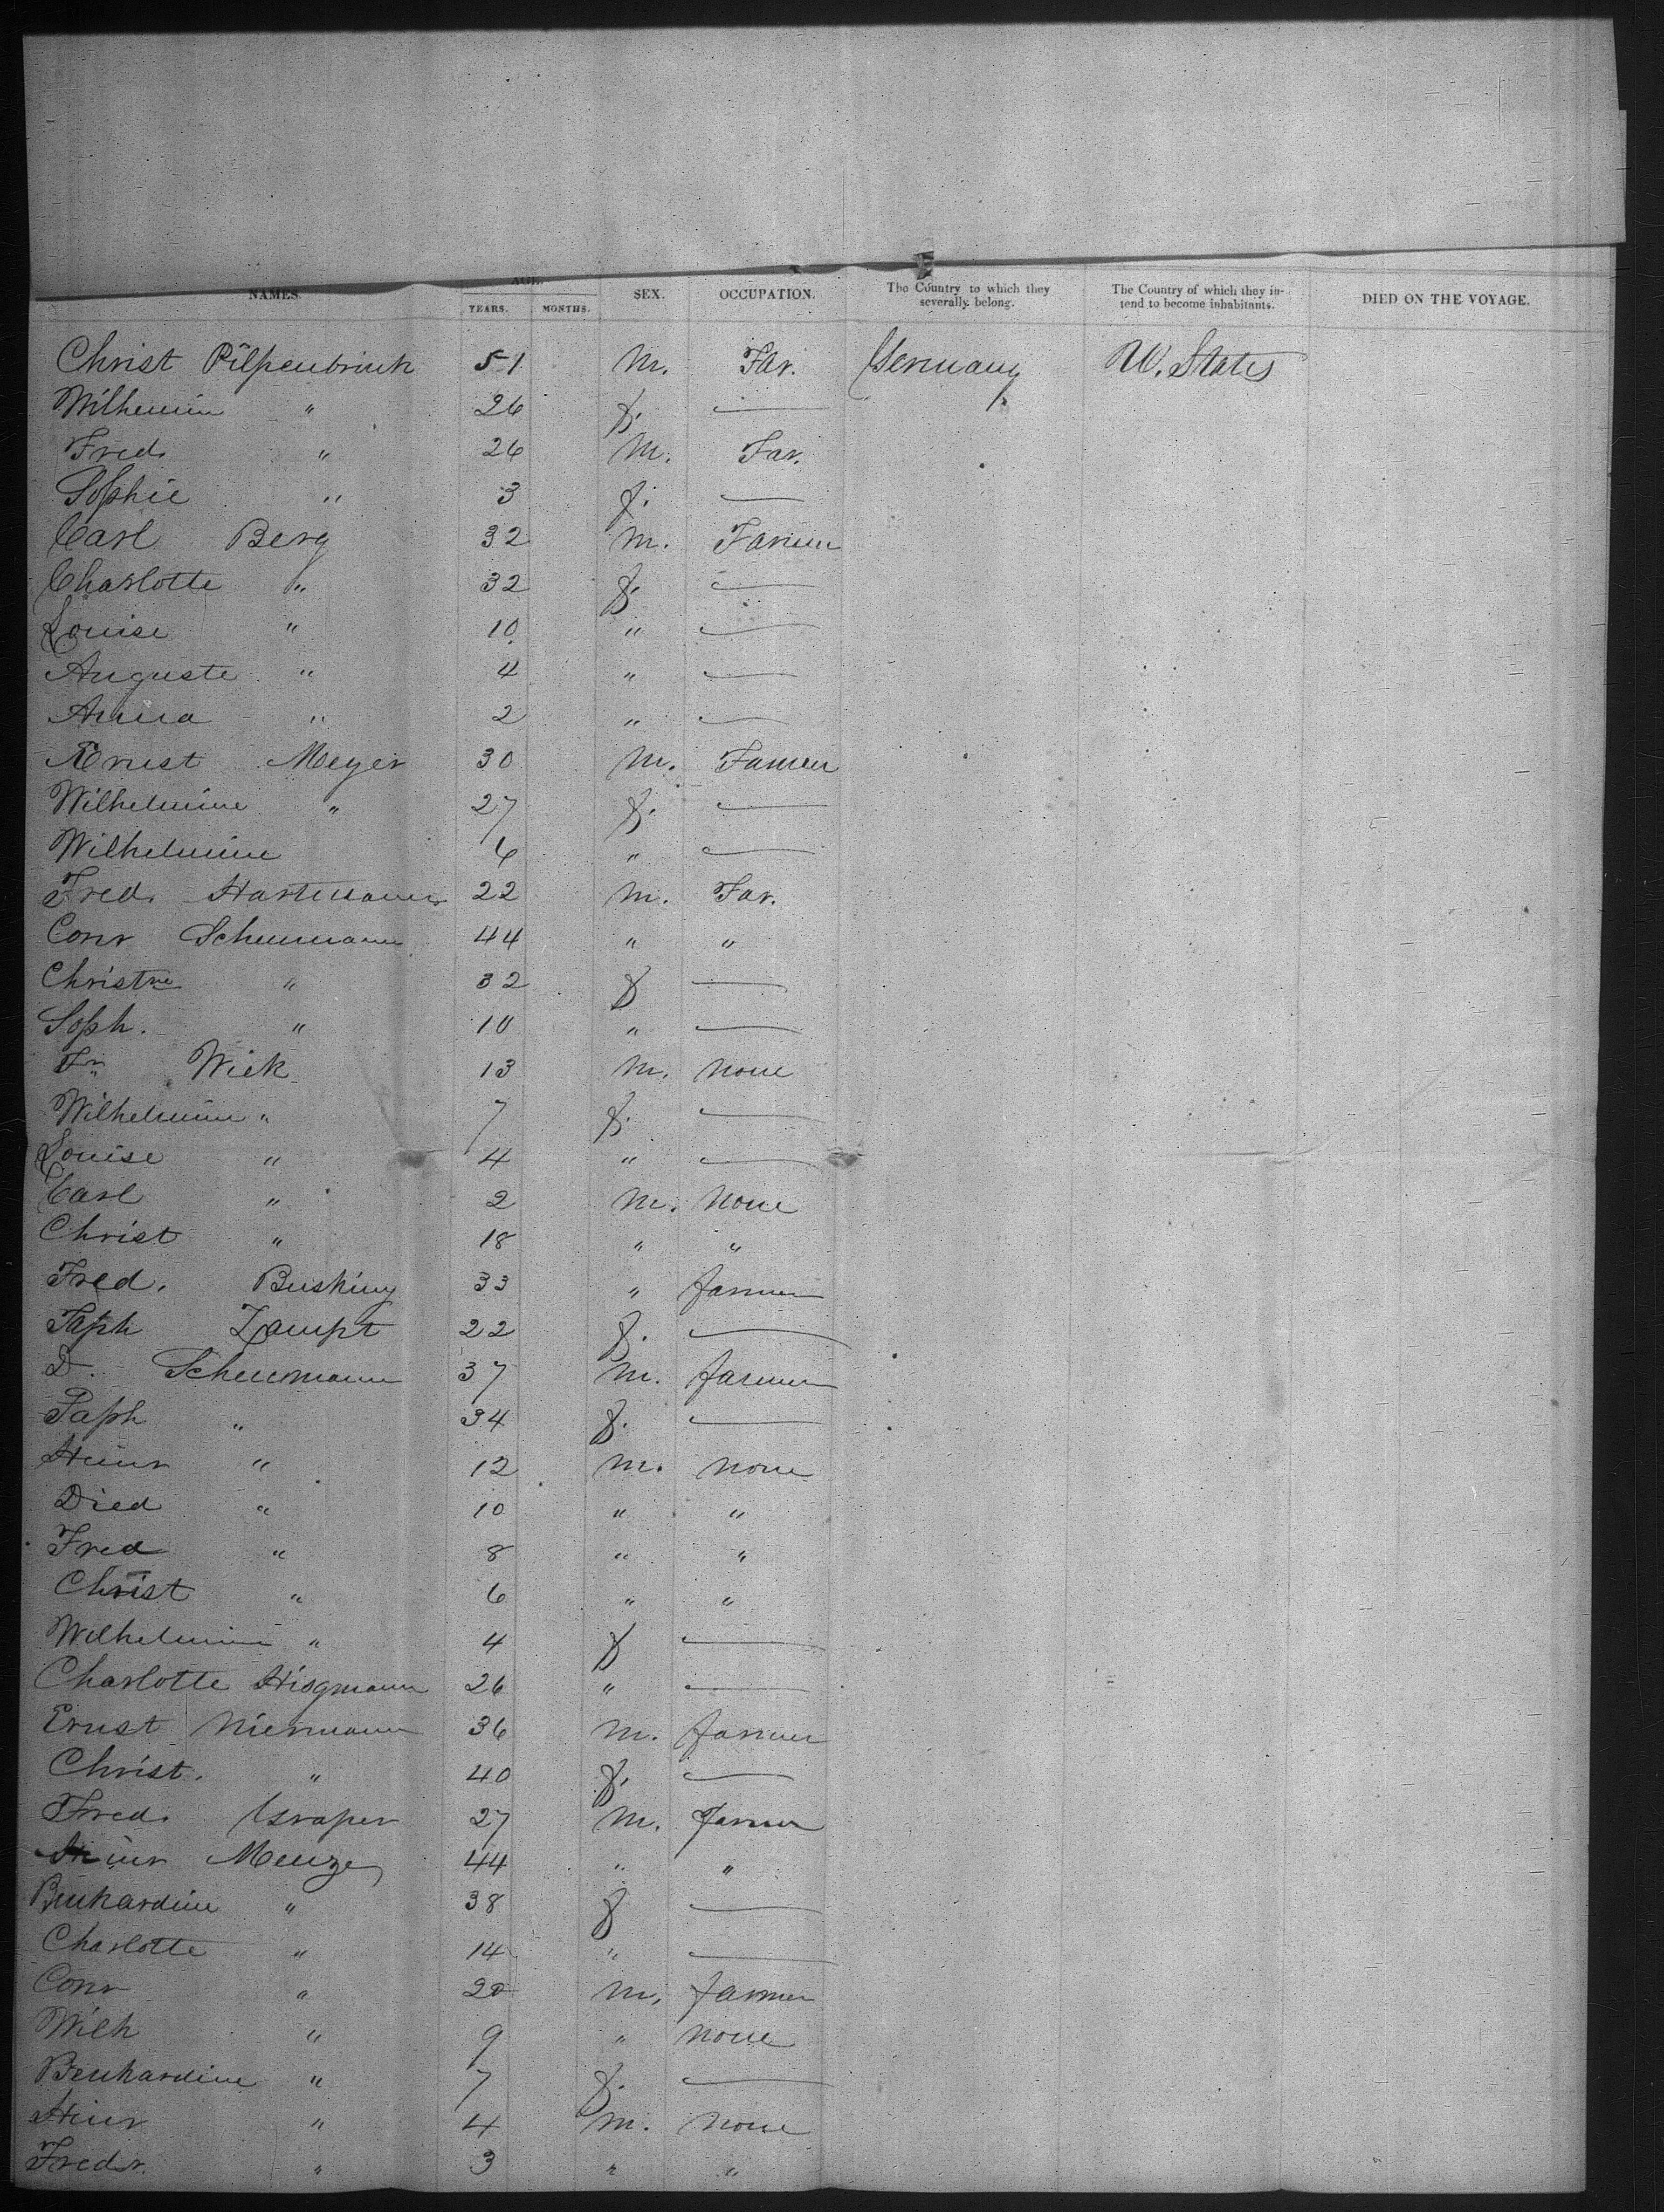 NAMES. AGE. SEX. OCCUPATION. The Country to which they severally belong. The Country of which they intend to become inhabitants. DIED ON THE VOYAGE.
YEARS. MONTHS.
Christ Pilpenbrink 51 M. Far. Germany U. States
Wilhemin " 26 f. —
Fred. " 26 M. Far.
Sophie " 3 f. —
Carl Berg 32 M. Farmer
Charlotte " 32 f. —
Louise " 10 " —
Auguste " 4 " —
Anna " 2 " —
Ernst Meyer 30 M. Farmer
Wilhelmine " 27 f. —
Wilhelmine 6 " —
Fred. Hartmann 22 M. Far.
Conr Schumann 44 " "
Christne " 32 f —
Soph. " 10 " —
Fr. Wick 13 M. none
Wilhelmine " 7 f. —
Louise " 4 " —
Carl " 2 M. none
Christ " 18 " "
Fred. Busking 33 " farmer
Soph Zampt 22 f. —
D. Scheumann 37 M. farmer
Soph " 34 f. —
Heinr " 12 M. none
Died " 10 " "
Fred " 8 " "
Christ " 6 " "
Wilhelmine " 4 f —
Charlotte 26 " —
Ernst Niermann 36 M. farmer
Christ. " 40 f. —
Fred. Graper 27 M. farmer
Heinr Menze 44 " "
Benhardine " 38 f —
Charlotte " 14 " —
Conr " 20 M. farmer
Wilh " 9 " none
Benhardine " 7 f. —
Hinr " 4 M. none
Fredr. " 3 " "